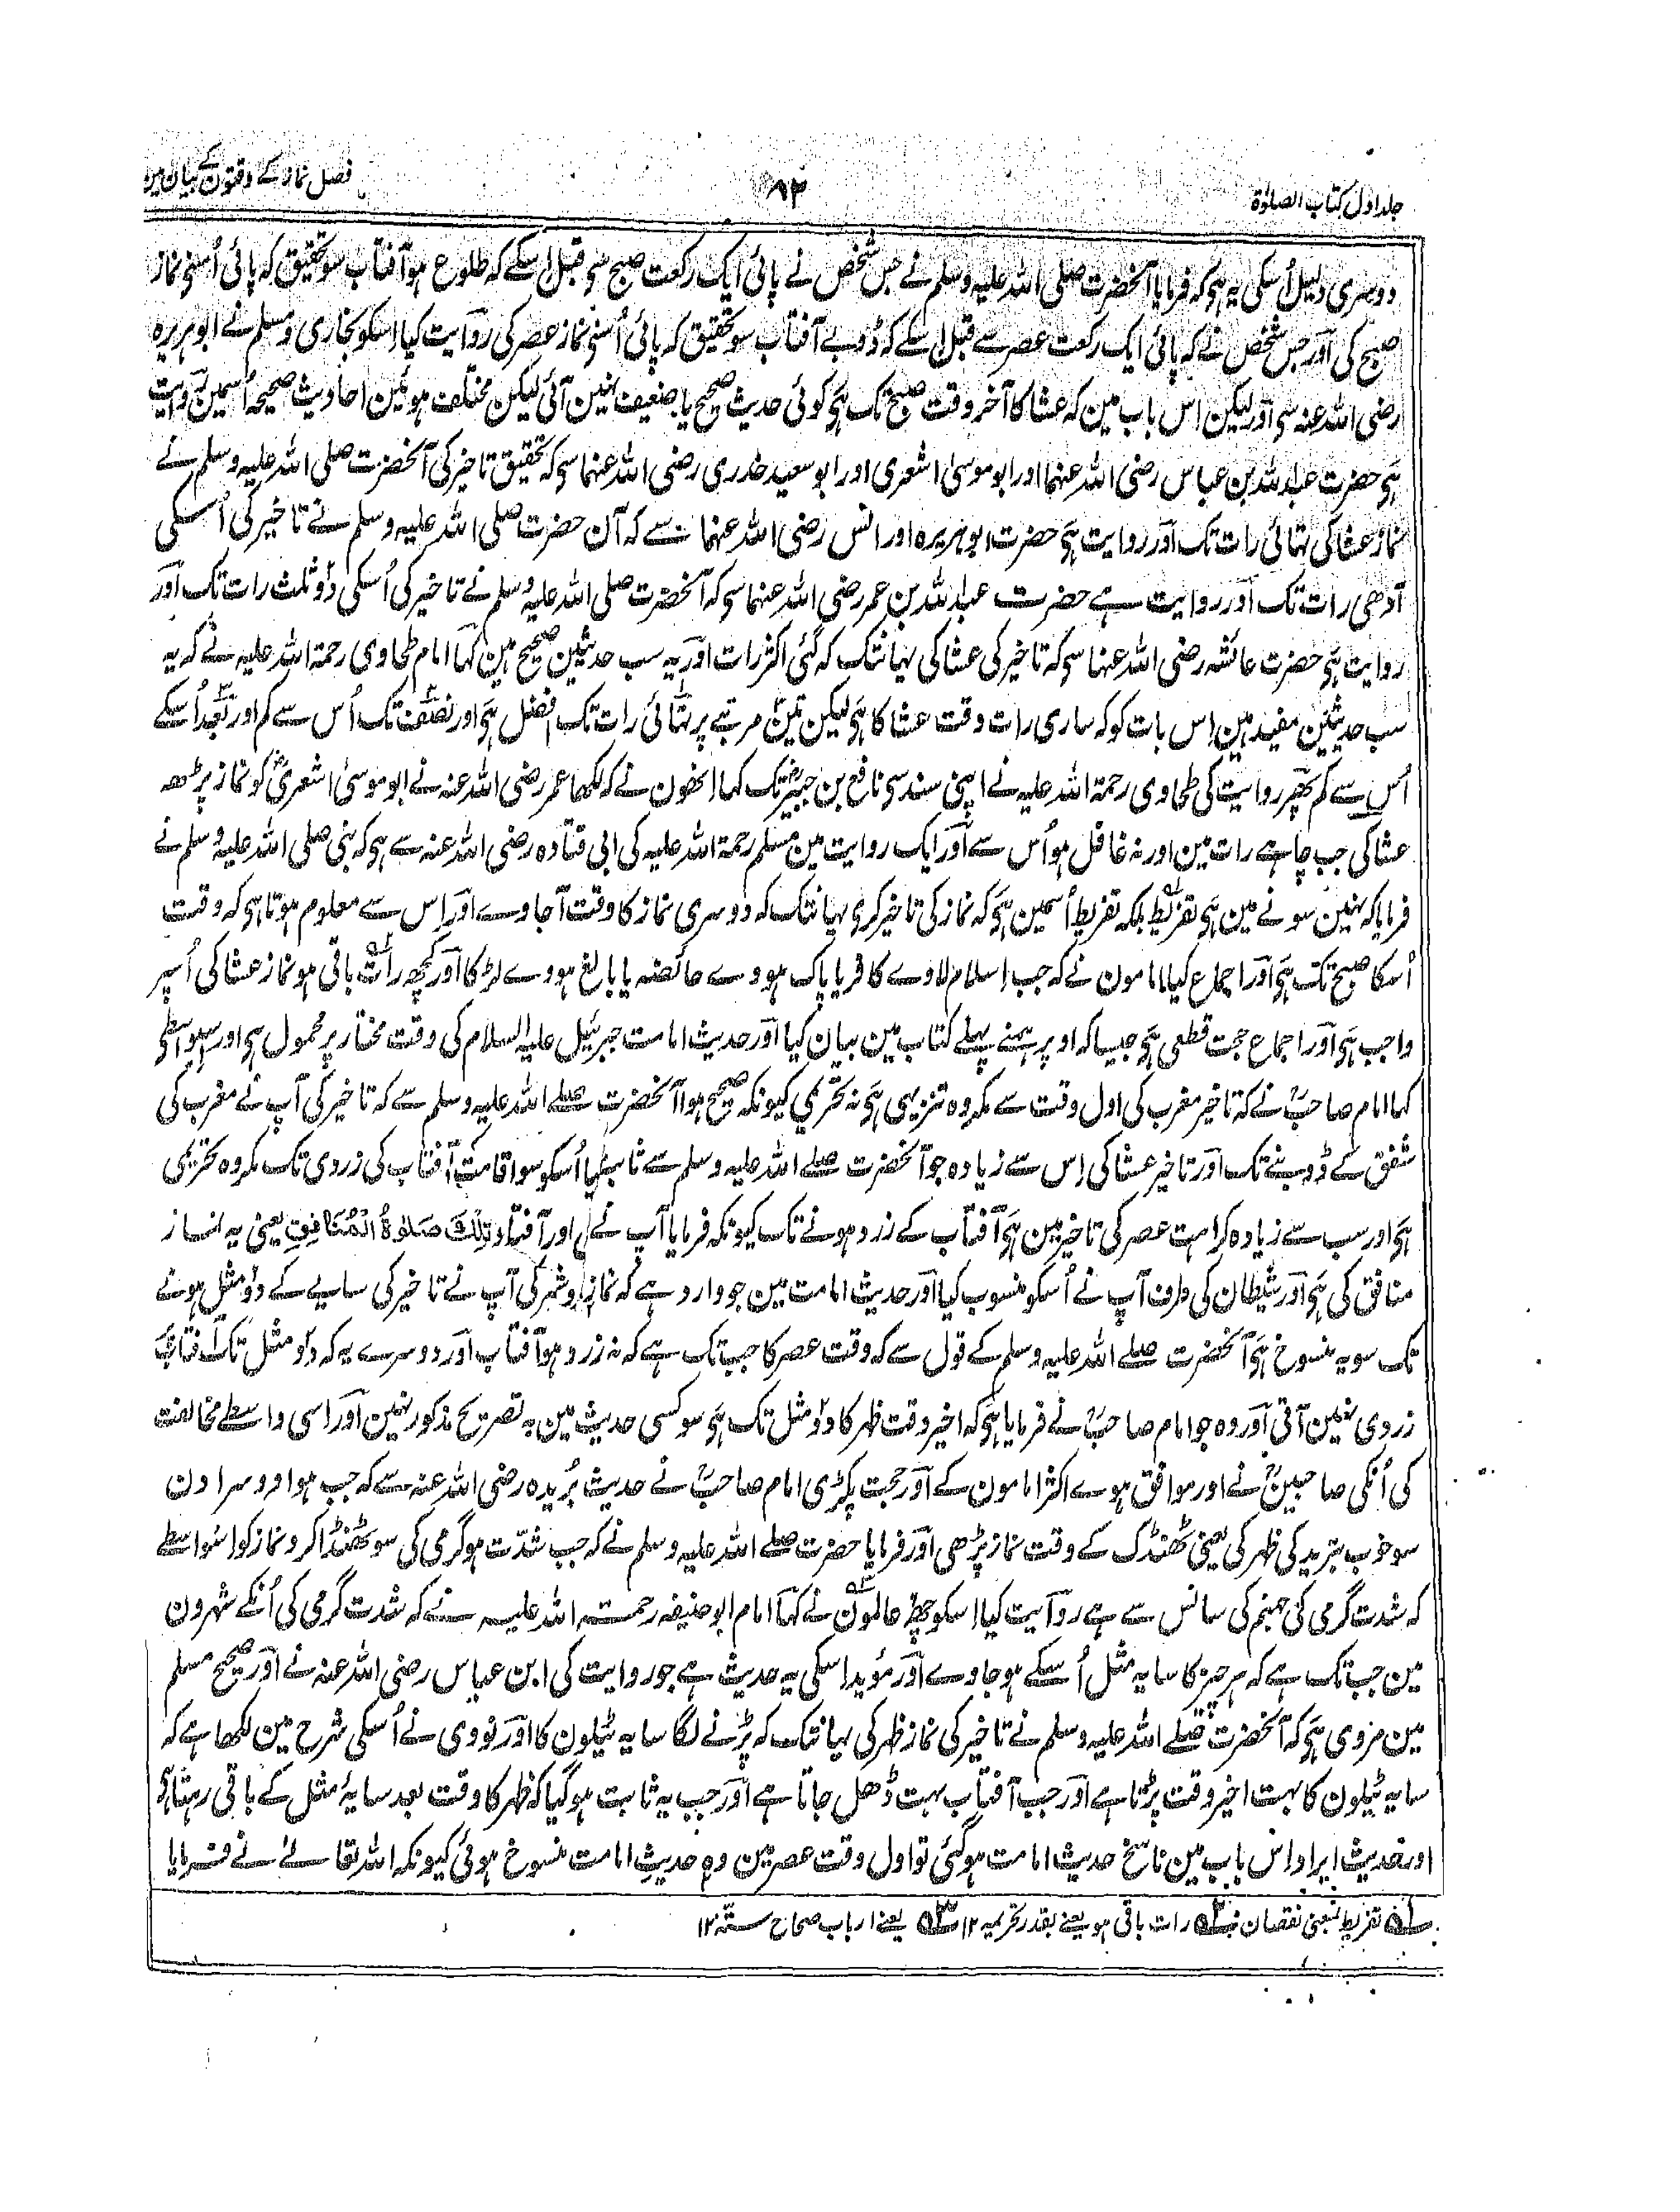 جلد اول کتاب الصلوٰۃ
۸۲
فصل نماز کے وقتون کے بیان مین
دوسری دلیل اُسکی یہ ہی کہ فرمایا آنحضرت صلی اللہ علیہ وسلم نے جس شخص نے پائی ایک رکعت صبح سی قبل اسکے کہ طلوع ہو آفتاب سو تحقیق کہ پائی اُسنے نماز
صبح کی اور جس شخص نے کہ پائی ایک رکعت عصر سے قبل اسکے کہ ڈوبے آفتاب سو تحقیق کہ پائی اُسنے نماز عصر کی روایت کیا اسکو بخاری و مسلم نے ابو ہریرہ
رضی اللہ عنہ سی اور لیکن اس باب مین کہ عشا کا آخر وقت صبح تک ہی کوئی حدیث صحیح یا ضعیف نہین آئی لیکن مختلف ہوئین احادیث صحیحہ اُسمین روایت
ہی حضرت عبداللہ بن عباس رضی اللہ عنہما اور ابو موسیٰ اشعری اور ابو سعید خدری رضی اللہ عنہما سی کہ تحقیق تاخیر کی آنحضرت صلی اللہ علیہ وسلم نے
نماز عشا کی تہائی رات تک اور روایت ہی حضرت ابو ہریرہ اور انس رضی اللہ عنہما سے کہ آن حضرت صلی اللہ علیہ وسلم نے تاخیر کی اُسکی
آدھی رات تک اور روایت ہے حضرت عبداللہ بن عمر رضی اللہ عنہما سی کہ آنحضرت صلی اللہ علیہ وسلم نے تاخیر کی اُسکی دو ثلث رات تک اور
روایت ہی حضرت عائشہ رضی اللہ عنہا سی کہ تاخیر کی عشا کی یہانتک کہ گئی اکثر رات اور یہ سب حدیثین صحیح ہین کہا امام طحاوی رحمۃ اللہ علیہ نے کہ یہ
سب حدیثین مفید ہین اس بات کو کہ ساری رات وقت عشا کا ہی لیکن تین مرتبے پر تہائی رات تک افضل ہی اور نصف تک اُس سے کم اور بعد اُسکے
اُس سے کم پھر روایت کی طحاوی رحمۃ اللہ علیہ نے اپنی سند سی نافع بن جبیر تک کہا انھون نے کہ لکھا عمر رضی اللہ عنہ نے ابو موسیٰ اشعریؓ کو نماز پڑھ
عشا کی جب چاہے رات مین اور نہ غافل ہو اُس سے اور ایک روایت مین مسلم رحمۃ اللہ علیہ کی ابی قتادہ رضی اللہ عنہ سے ہی کہ نبی صلی اللہ علیہ وسلم نے
فرمایا کہ نہین سونے مین ہی تفریط بلکہ تفریط اُسمین ہی کہ نماز کی تاخیر کری یہانتک کہ دوسری نماز کا وقت آجاوے اور اِس سے معلوم ہوتا ہی کہ وقت
اُسکا صبح تک ہی اور اجماع کیا امامون نے کہ جب اسلام لاوے کافر یا پاک ہووے حائضہ یا بالغ ہووے لڑکا اور کچھ رات باقی ہو نماز عشا کی اُسپر
واجب ہی اور اجماع حجت قطعی ہی جیسا کہ اوپر ہمنے پہلے کتاب مین بیان کیا اور حدیث امامت جبرئیل علیہ السلام کی وقت مختار پر محمول ہی اور اسیواسطے
کہا امام صاحبؒ نے کہ تاخیر مغرب کی اول وقت سے مکروہ تنزیہی ہی نہ تحریمی کیونکہ صحیح ہوا آنحضرت صلے اللہ علیہ وسلم سے کہ تاخیر کی آپ نے مغرب کی
شفق کے ڈوبنے تک اور تاخیر عشا کی اِس سے زیادہ جو آنحضرت صلے اللہ علیہ وسلم سے ثابت اُسکو سوا قامت آفتاب کی زردی تک مکروہ تحریمی
ہی اور سب سے زیادہ کراہت عصر کی تاخیر مین ہی آفتاب کے زرد ہونے تک کیونکہ فرمایا آپ نے اور آفتاب تِلْكَ صَلوٰةُ الْمُنَافِقِ یعنی یہ نماز
منافق کی ہی اور شیطان کی طرف آپ نے اُسکو منسوب کیا اور حدیث امامت مین جو وارد ہے کہ نماز کی آپ نے تاخیر کی سایے کے دو مثل ہونے
تک سو یہ منسوخ ہی آنحضرت صلے اللہ علیہ وسلم کے قول سے کہ وقت عصر کا جب تک ہے کہ نہ زرد ہو آفتاب اور دوسرے یہ کہ دو مثل تک آفتاب
زردی نہین آتی اور وہ جو امام صاحبؒ نے فرمایا ہی کہ اخیر وقت ظہر کا دو مثل تک ہی سو کسی حدیث مین بہ تصریح مذکور نہین اور اسی واسطے مخالفت
کی اُنکی صاحبینؒ نے اور موافق ہوے اکثر امامون کے اور حجت پکڑی امام صاحبؒ نے حدیث بُریدہ رضی اللہ عنہ سے کہ جب ہوا دوسرا دن
سو خوب تبرید کی ظہر کی یعنی ٹھنڈک کے وقت نماز پڑھی اور فرمایا حضرت صلے اللہ علیہ وسلم نے کہ جب شدّت ہو گرمی کی سو ٹھنڈا کرو نماز کو اسواسطے
کہ شدت گرمی کی جہنم کی سانس سے ہے روایت کیا اسکو چھ عالمون نے کہا امام ابو حنیفہ رحمتہ اللہ علیہ نے کہ شدت گرمی کی اُنکے شہرون
مین جب تک ہے کہ ہر چیز کا سایہ مثل اُسکے ہو جاوے اور مؤید اسکی یہ حدیث ہے جو روایت کی ابن عباس رضی اللہ عنہ نے اور صحیح مسلم
مین مروی ہی کہ آنحضرت صلے اللہ علیہ وسلم نے تاخیر کی نماز ظہر کی یہانتک کہ پڑنے لگا سایہ ٹیلون کا اور نووی نے اُسکی شرح مین لکھا ہے کہ
سایہ ٹیلون کا بہت اخیر وقت پڑتا ہے اور جب آفتاب بہت ڈھل جاتا ہے اور جب یہ ثابت ہو گیا کہ ظہر کا وقت بعد سایۂ مثل کے باقی رہتا ہی
اور حدیث ابراد اس باب مین ناسخ حدیث امامت ہو گئی تو اول وقت عصر مین وہ حدیثِ امامت منسوخ ہوئی کیونکہ اللہ تعالےٰ نے فرمایا
؎۱ تفریط بمعنی نقصان ؎۲ رات باقی ہو یعنے بقدر تحریمہ ۱۲ ؎۳ یعنے ارباب صحاح ستّہ ۱۲